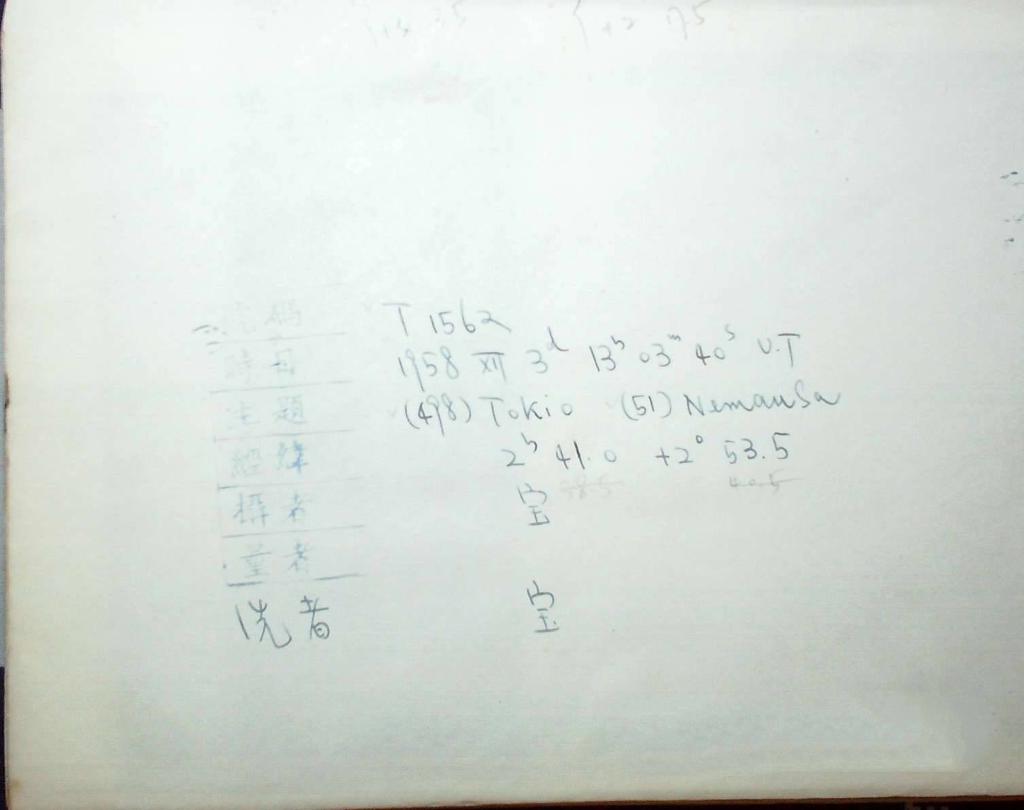 號碼 T 1562
時日 1958 XII 3d 13h 03m 40s U.T
主題 (498) Tokio (51) Nemausa
經緯 2h 41.0 +2° 53.5
攝者 宝
量者
洗者 宝